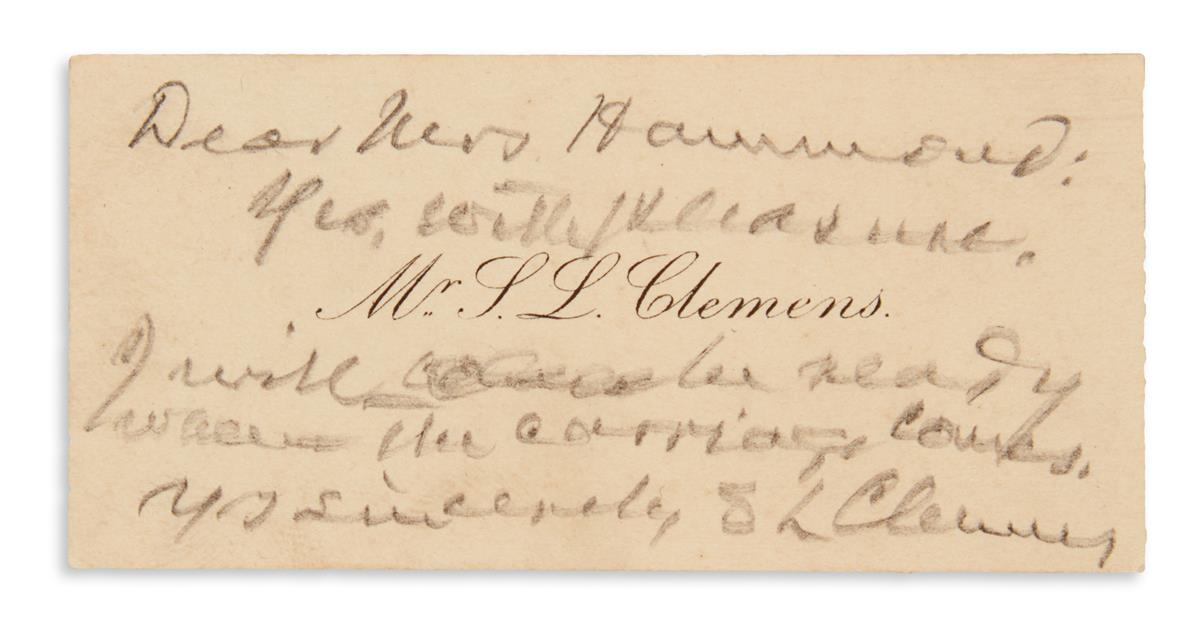 Dear Mrs Hammond:
Yes, with pleasure.
Mr. S. L. Clemens.
I will be ready
when the carriage comes.
Ys sincerely S L Clemens